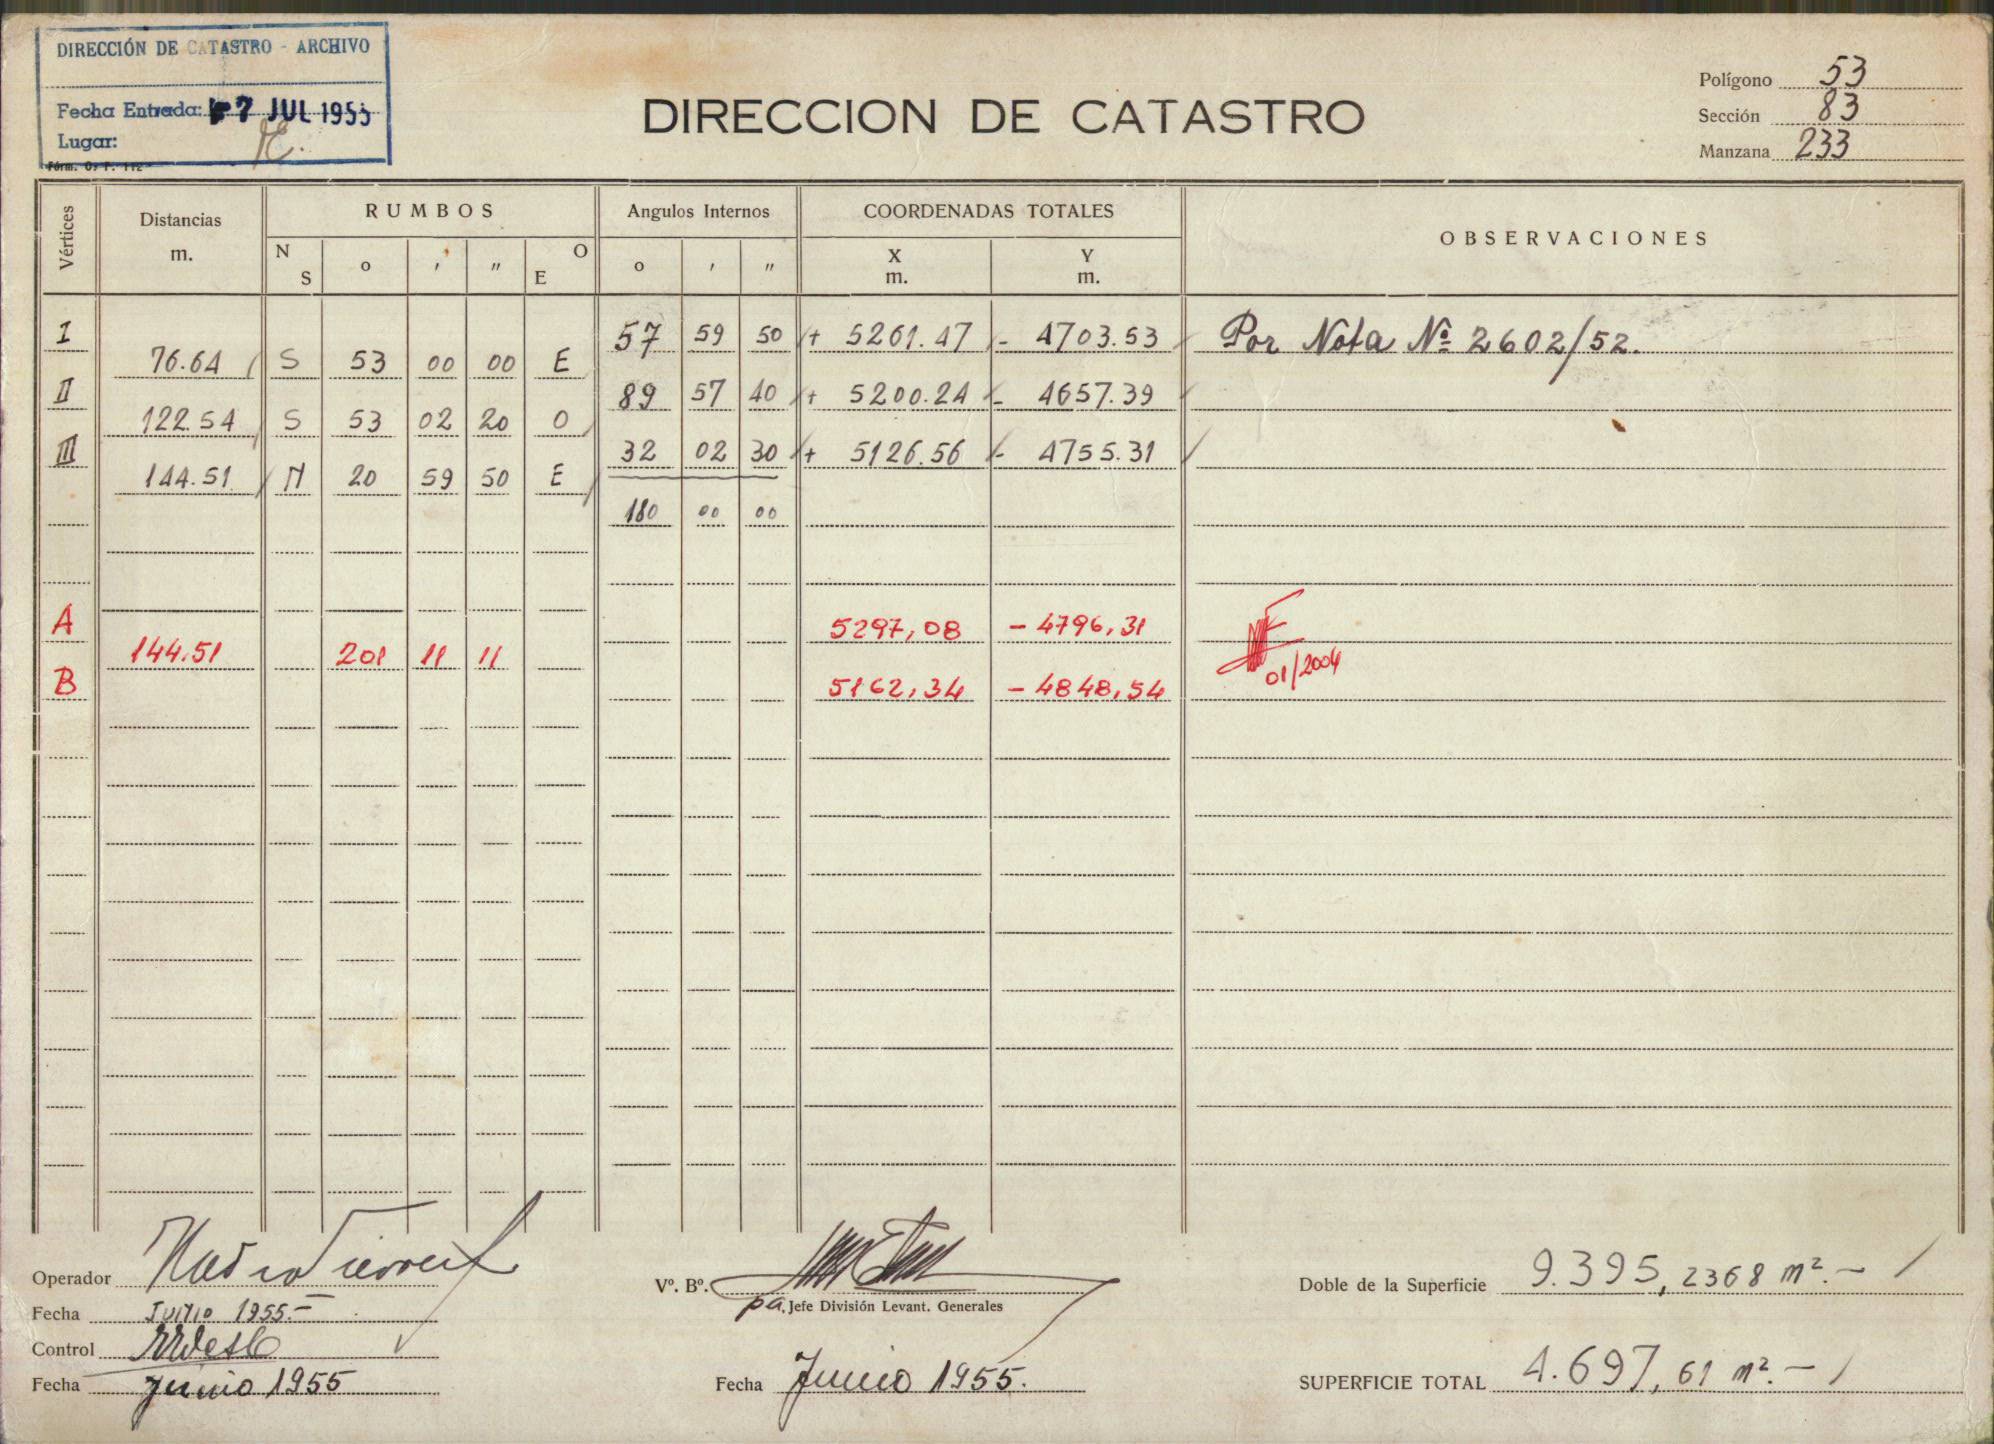 DIRECCIÓN DE CATASTRO - ARCHIVO
Fecha Entrada: 7 JUL 1955
Lugar:
Fórm. O. P. 112
DIRECCION DE CATASTRO
Polígono 53
Sección 83
Manzana 233
Vértices
Distancias
m.
RUMBOS
N S
o
'
"
O E
Angulos Internos
o ' "
COORDENADAS TOTALES
X
m.
Y
m.
OBSERVACIONES
I 57 59 50 + 5261.47 - 4703.53 Por Nota Nº 2602/52.
76.64 S 53 00 00 E
II 89 57 40 + 5200.24 - 4657.39
122.54 S 53 02 20 O
III 32 02 30 + 5126.56 - 4755.31
144.51 N 20 59 50 E
180 00 00
A 5297,08 - 4796,31
144.51 201 11 11
01/2004
B 5162,34 - 4848,54
Operador
Fecha Junio 1955.-
Control
Fecha Junio 1955
Vº. Bº.
pa, Jefe División Levant. Generales
Fecha Junio 1955.
Doble de la Superficie 9.395,2368 m².-
SUPERFICIE TOTAL 4.697,61 m².-